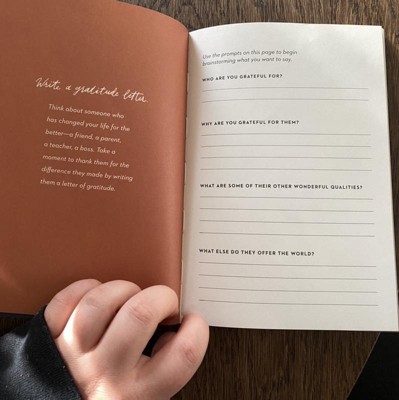 Write a gratitude letter
Think about someone who
has changed your life for the
better—a friend, a parent,
a teacher, a boss. Take a
moment to thank them for the
difference they made by writing
them a letter of gratitude.
Use the prompts on this page to begin
brainstorming what you want to say.
WHO ARE YOU GRATEFUL FOR?
WHY ARE YOU GRATEFUL FOR THEM?
WHAT ARE SOME OF THEIR OTHER WONDERFUL QUALITIES?
WHAT ELSE DO THEY OFFER THE WORLD?